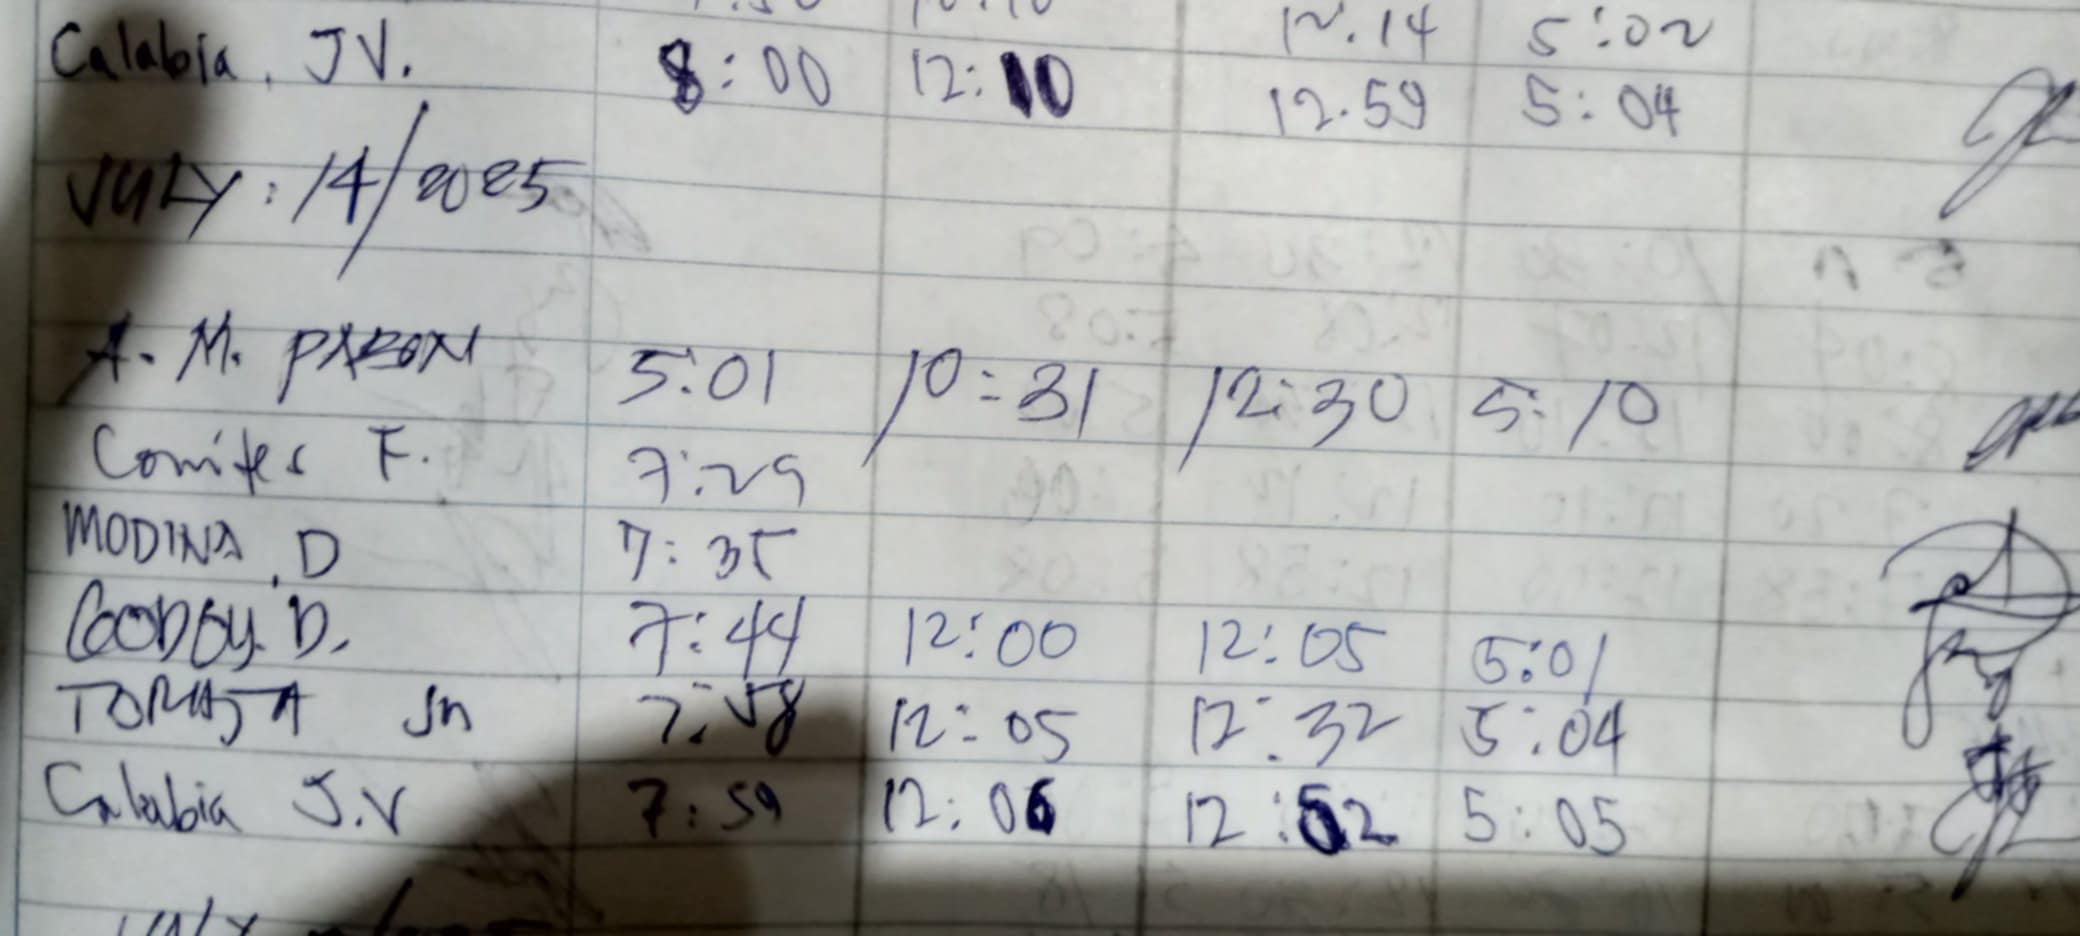 12.14 5:02
Calabia, JV. 8:00 12:10 12.59 5:04
JULY: 14/2025
A. M. PABON 5:01 10:31 12:30 5:10
Comites F. 7:29
MODINA, D 7:35
GODOY. D. 7:44 12:00 12:05 5:01
Jn 7:58 12:05 12:32 5:04
Calabia J.V 7:59 12:06 12:52 5:05